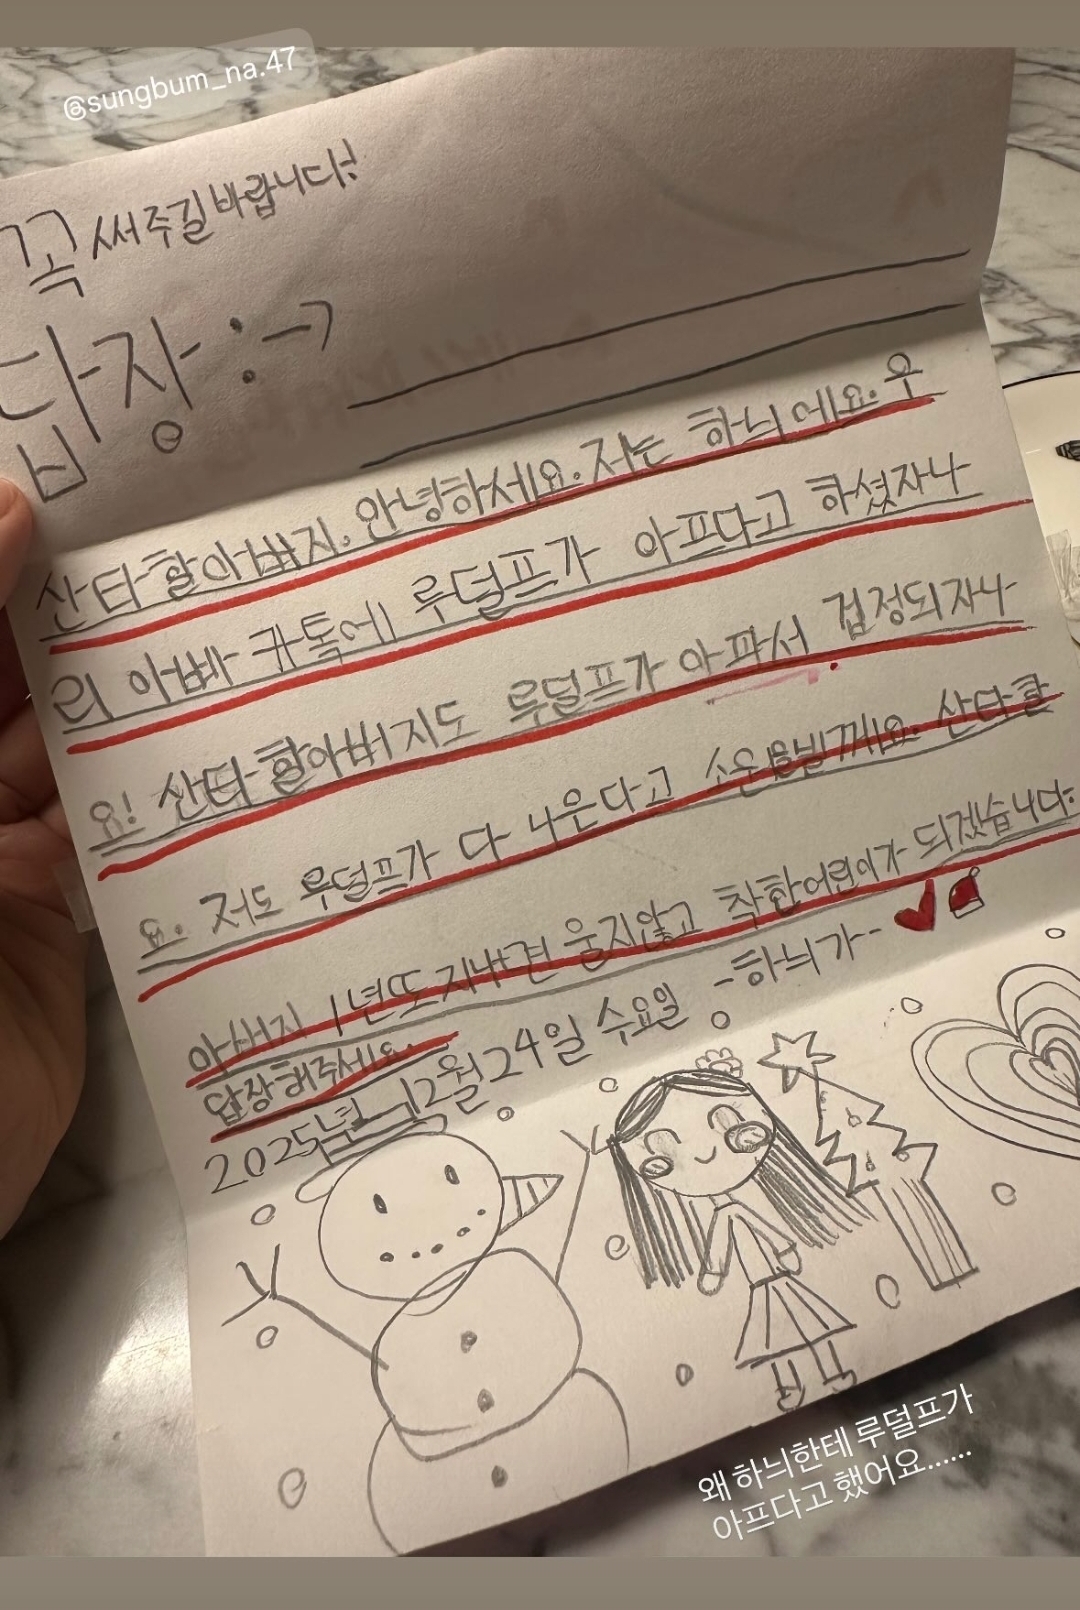 @sungbum_na.47
꼭 써주길 바랍니다!
답장:→
산타할아버지. 안녕하세요. 저는 하늬에요. 우
리 아빠 카톡에 루덜프가 아프다고 하셨자나
요! 산타할아버지도 루덜프가 아파서 겁정되자나
요. 저도 루덜프가 다 나은다고 소원을빌께요. 산타할
아버지 1년또지내면 울지않고 착한어린이가 되겠습니다.
답장해주세요.
-하늬가-
2025년 12월 24일 수요일
왜 하늬한테 루덜프가
아프다고 했어요......